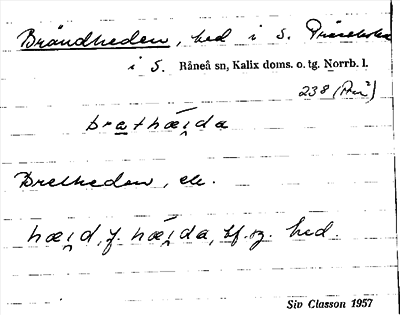 Brändheden, hed i s.
i S. Råneå sn, Kalix doms. o. tg. Norrb. l.
238 (Rnr²)
brathæ̀i̯da
Bretheden, ele.
hæi̯d, f. hæ̀i̯da, bf. sg. hed.
Siv Classon 1957